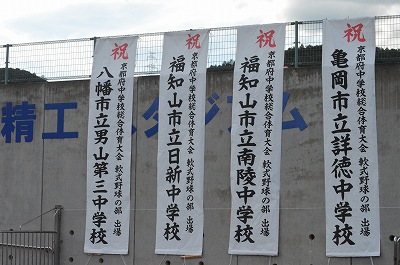 祝
京都府中学校総合体育大会 軟式野球の部 出場
亀岡市立詳徳中学校
祝
京都府中学校総合体育大会 軟式野球の部 出場
福知山市立南陵中学校
祝
京都府中学校総合体育大会 軟式野球の部 出場
福知山市立日新中学校
祝
京都府中学校総合体育大会 軟式野球の部 出場
八幡市立男山第三中学校
精工 タジアム